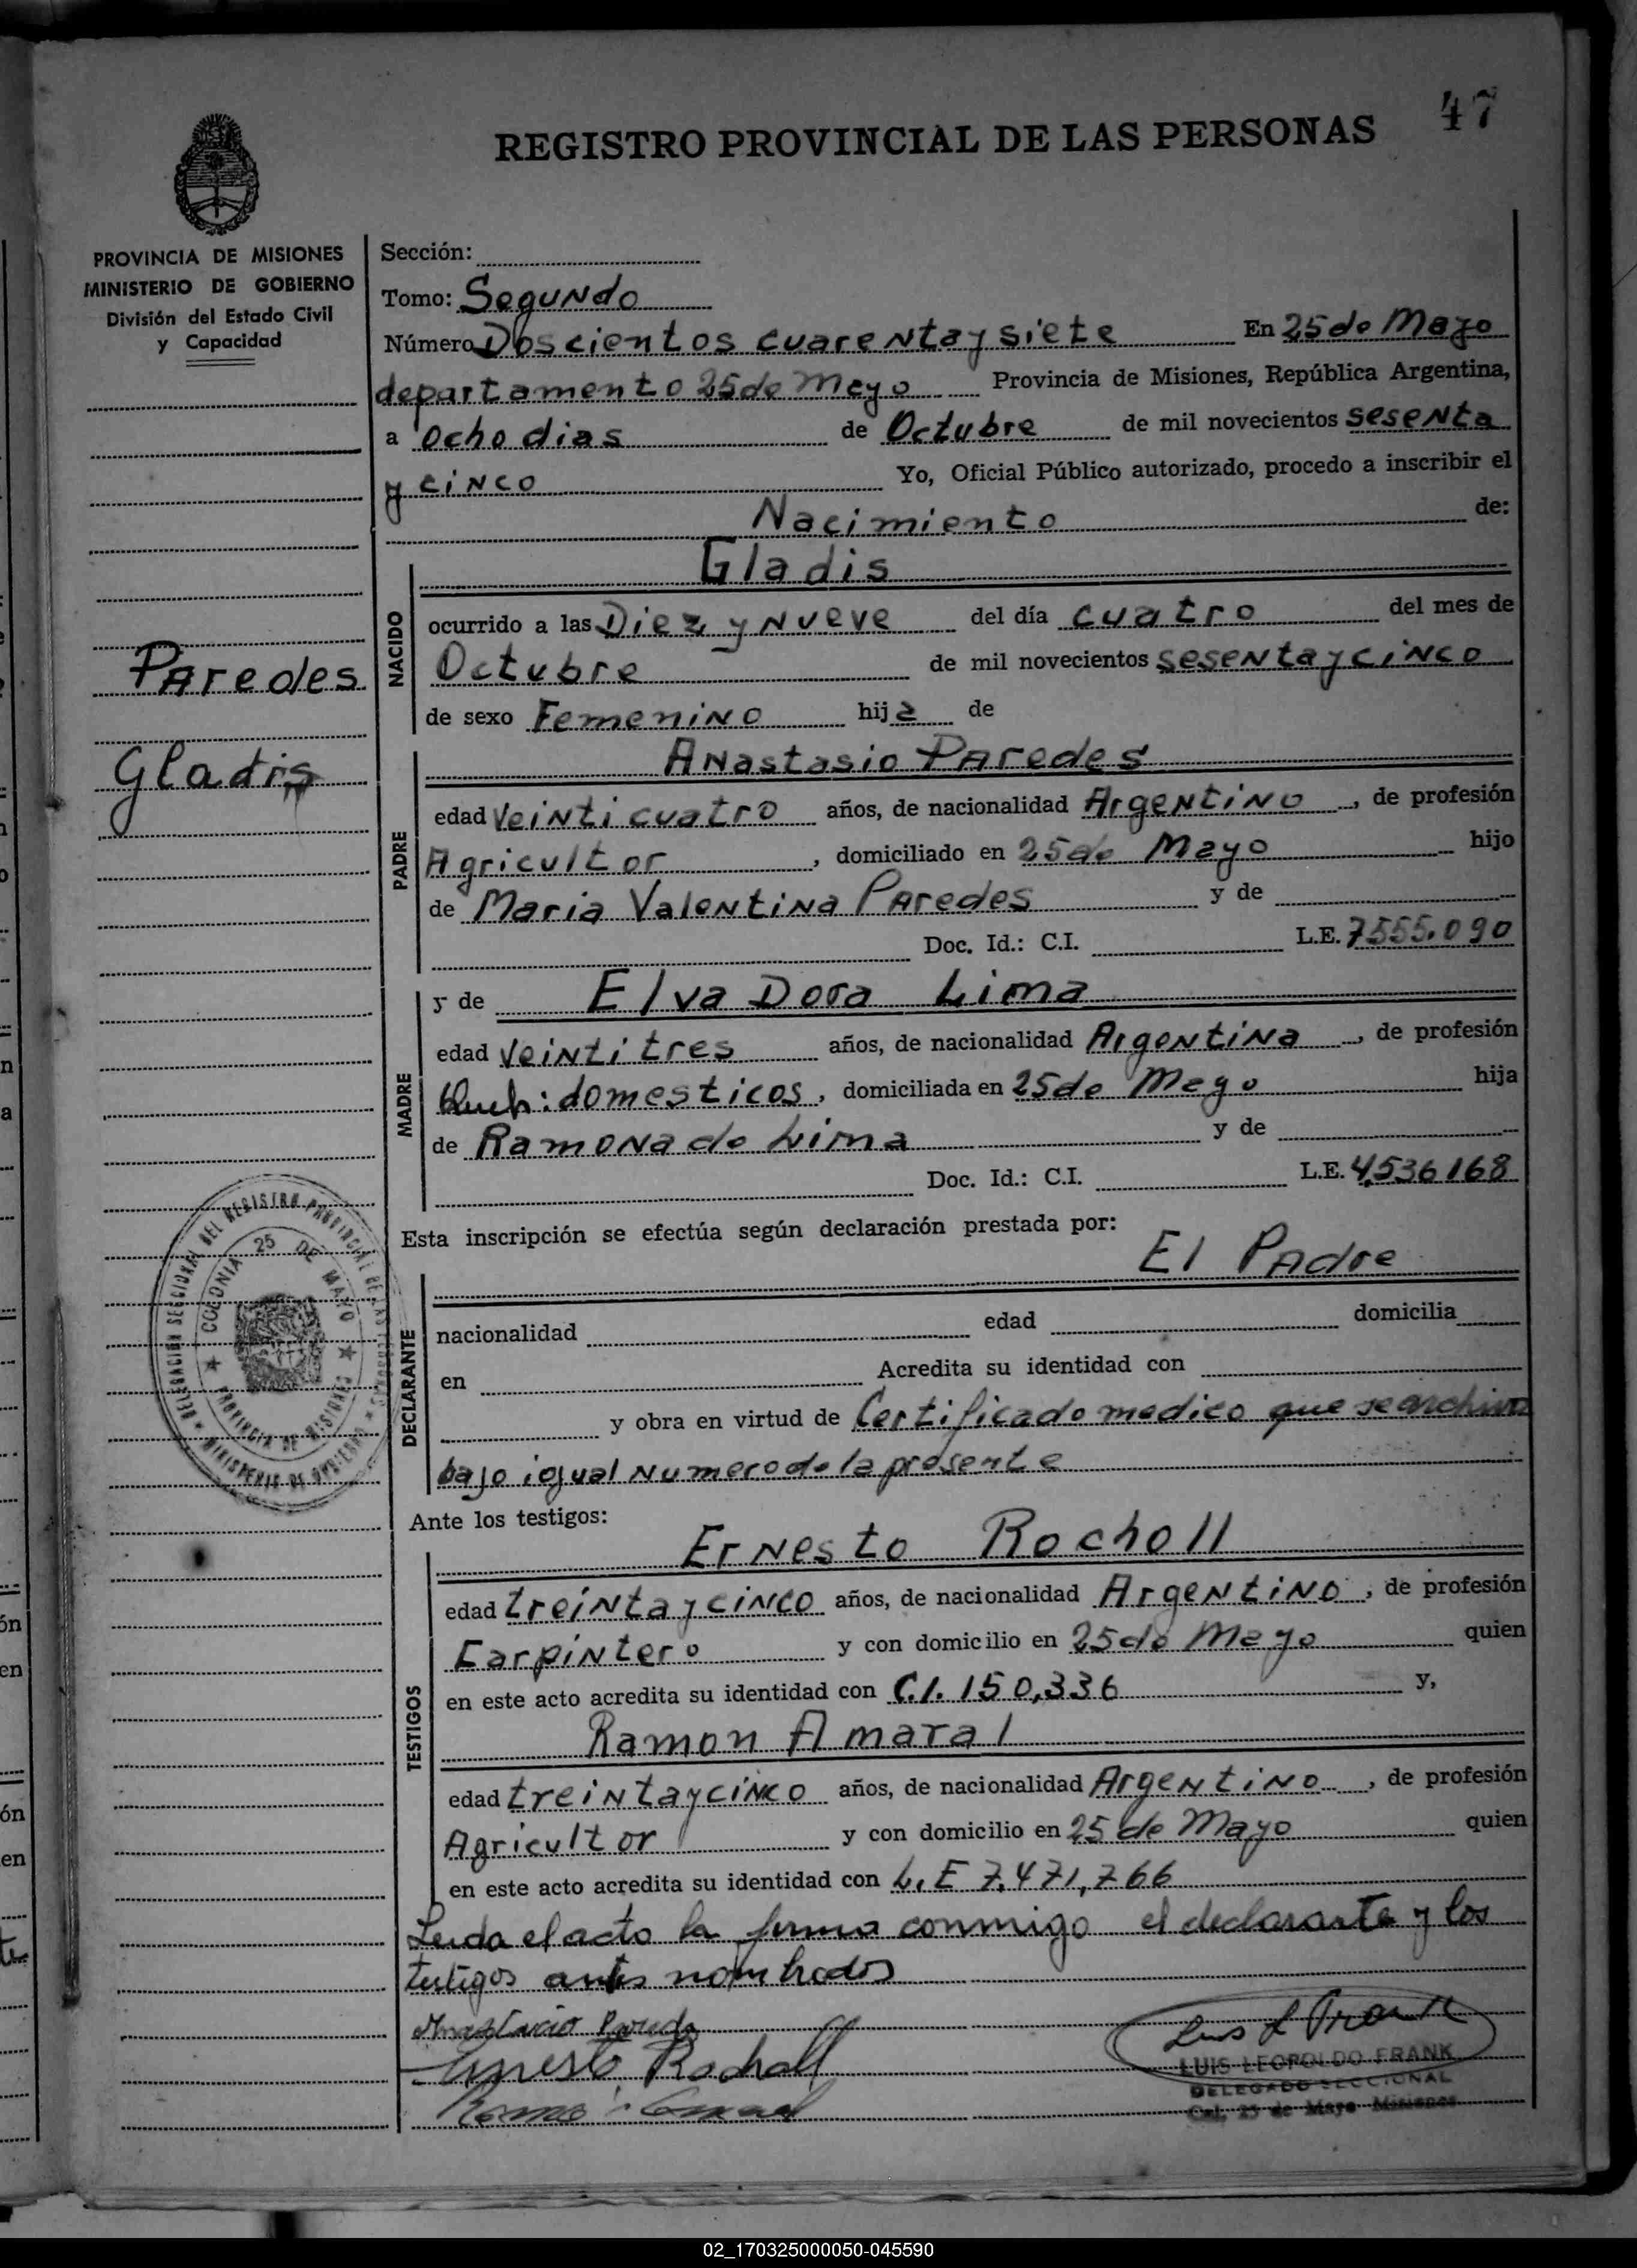 47
REGISTRO PROVINCIAL DE LAS PERSONAS
PROVINCIA DE MISIONES
MINISTERIO DE GOBIERNO
División del Estado Civil
y Capacidad
Paredes
Gladis
DELEGACIÓN SECCIONAL DEL REGISTRO PROVINCIAL DE LAS PERSONAS
COLONIA 25 DE MAYO
PROVINCIA DE MISIONES
MINISTERIO DE GOBIERNO
Sección:
Tomo: Segundo
Número Doscientos cuarenta y siete En 25 de Mayo
departamento 25 de Mayo Provincia de Misiones, República Argentina,
a ocho dias de Octubre de mil novecientos sesenta
y cinco Yo, Oficial Público autorizado, procedo a inscribir el
Nacimiento de:
NACIDO
Gladis
ocurrido a las Diez y Nueve del día cuatro del mes de
Octubre de mil novecientos sesenta y cinco
de sexo Femenino hija de
PADRE
Anastasio Paredes
edad Veinticuatro años, de nacionalidad Argentino, de profesión
Agricultor, domiciliado en 25 de Mayo hijo
de Maria Valentina Paredes y de
Doc. Id.: C.I. L.E. 7555.090
MADRE
y de Elva Dora Lima
edad Veintitres años, de nacionalidad Argentina, de profesión
domesticos, domiciliada en 25 de Mayo hija
de Ramona de Lima y de
Doc. Id.: C.I. L.E. 4,536168
Esta inscripción se efectúa según declaración prestada por:
El Padre
DECLARANTE
nacionalidad edad domicilia
en Acredita su identidad con
y obra en virtud de Certificado medico que se archiva
bajo igual Numero de la presente
Ante los testigos:
TESTIGOS
Ernesto Rocholl
edad treinta y cinco años, de nacionalidad Argentino, de profesión
Carpintero y con domicilio en 25 de Mayo quien
en este acto acredita su identidad con C.I. 150,336 y,
Ramon Amaral
edad treinta y cinco años, de nacionalidad Argentino, de profesión
Agricultor y con domicilio en 25 de Mayo quien
en este acto acredita su identidad con L.E 7,471,766
Leida el acta la firma conmigo el declarante y los
testigos antes nombrados
Anastacio Paredes
Ernesto Rocholl
Luis L Frank
LUIS LEOPOLDO FRANK
DELEGADO SECCIONAL
Col. 25 de Mayo Misiones
02_170325000050-045590